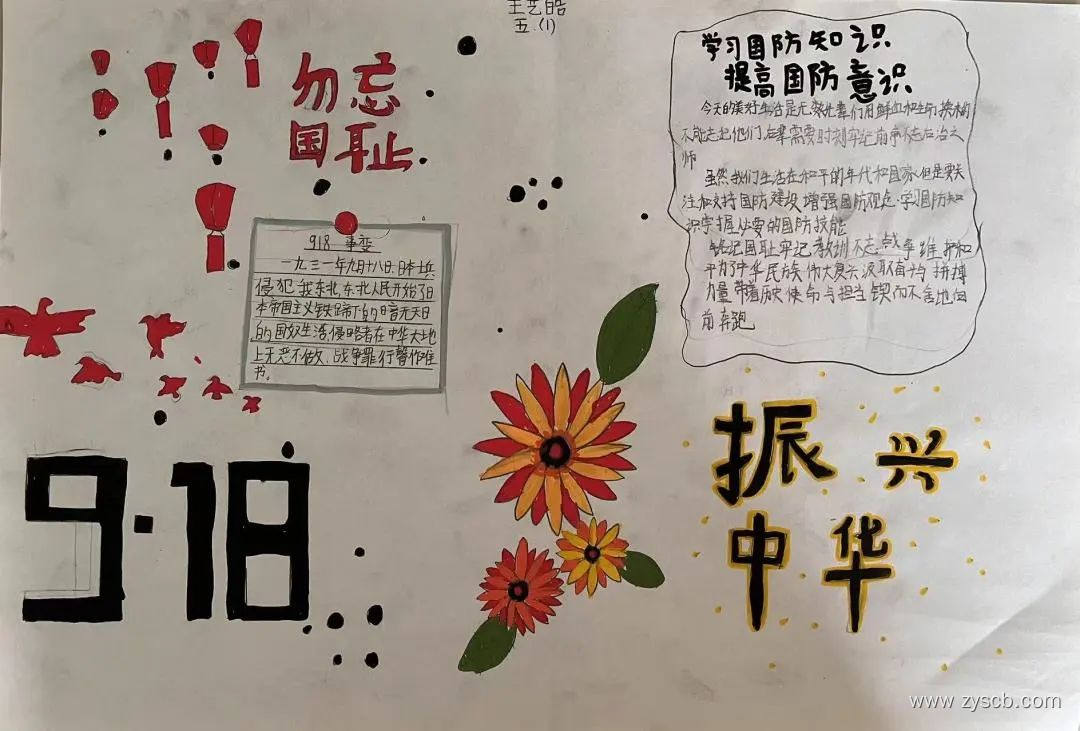 王艺皓
五.(1)
勿忘
国耻
918 事变
一九三一年九月十八日,日本士兵
侵犯我东北,东北人民开始了日
本帝国主义铁蹄下的暗无天日
的国奴生活,侵略者在中华大地
上无恶不做,战争罪行罄竹难
书。
9·18
学习国防知识
提高国防意识
今天的美好生活是无数先辈们用鲜血和生命换来的
不能忘记他们,后辈需要时刻牢记前事不忘后事之
师
虽然我们生活在和平的年代和国家,但是要关
注和支持国防建设,增强国防观念,学习国防知
识掌握必要的国防技能
铭记国耻牢记教训不忘战争维护和
平为了中华民族伟大复兴汲取奋斗与拼搏
力量带着历史使命与担当锲而不舍地向
前奔跑
振兴
中华
www.zyscb.com